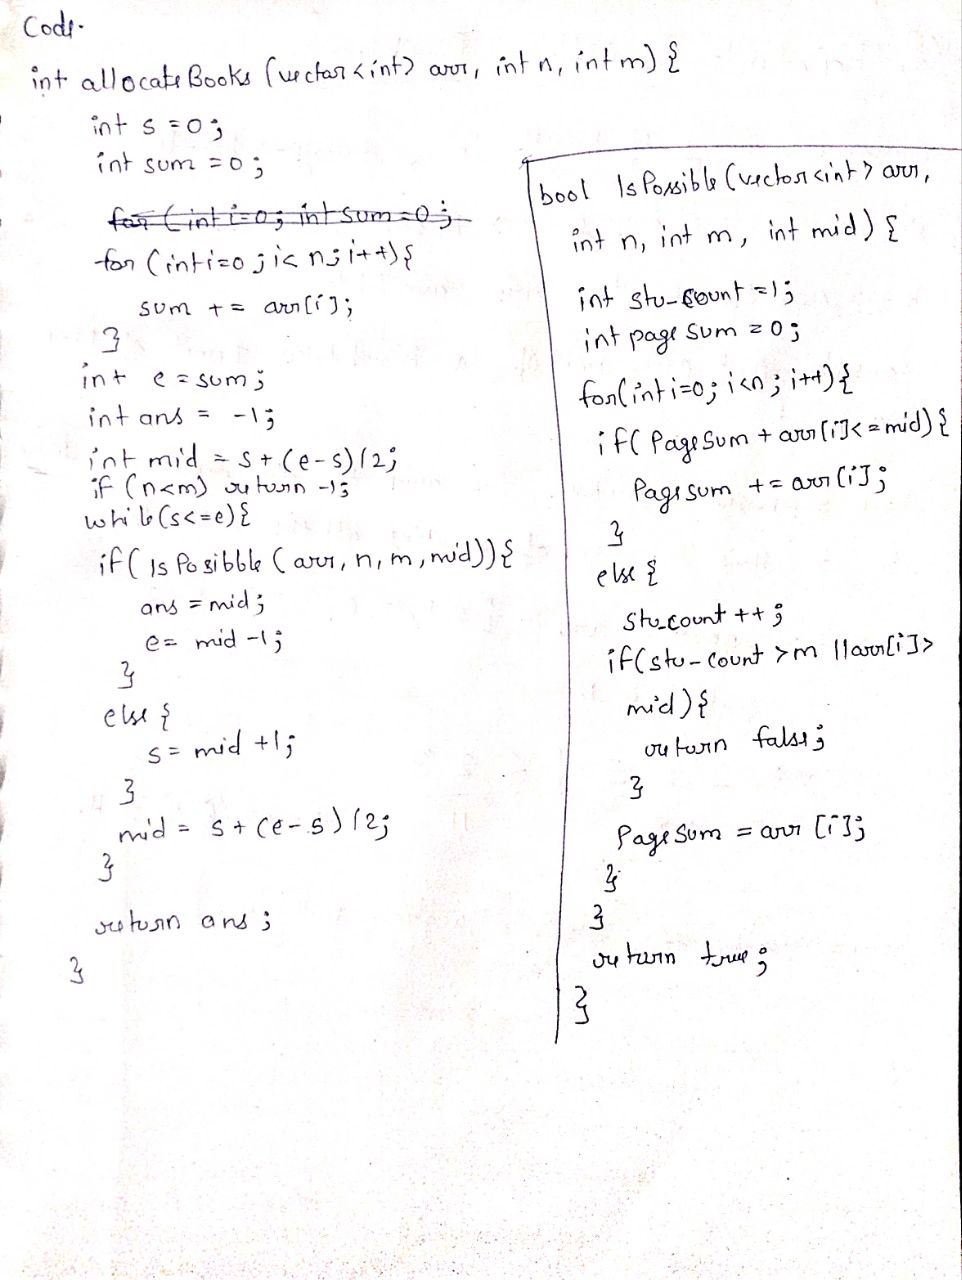 Code.
int allocateBooks (vector<int> arr, int n, int m) {
int s = 0;
int sum = 0;
for (int i=0; int sum=0;
for (int i=0; i< n; i++){
sum += arr[i];
}
int e = sum;
int ans = -1;
int mid = s + (e-s)/2;
if (n<m) return -1;
while(s<=e){
if( Is Posibble (arr, n, m, mid)){
ans = mid;
e = mid -1;
}
else {
s = mid +1;
}
mid = s + (e-s)/2;
}
return ans;
}
bool Is Possible (vector<int> arr,
int n, int m, int mid) {
int stu_count =1;
int page sum = 0;
for(int i=0; i<n; i++){
if( Page Sum + arr[i]<=mid) {
Page sum += arr[i];
}
else {
stu_count ++;
if(stu_count >m || arr[i]>
mid) {
return false;
}
Page Sum = arr [i];
}
}
return true;
}